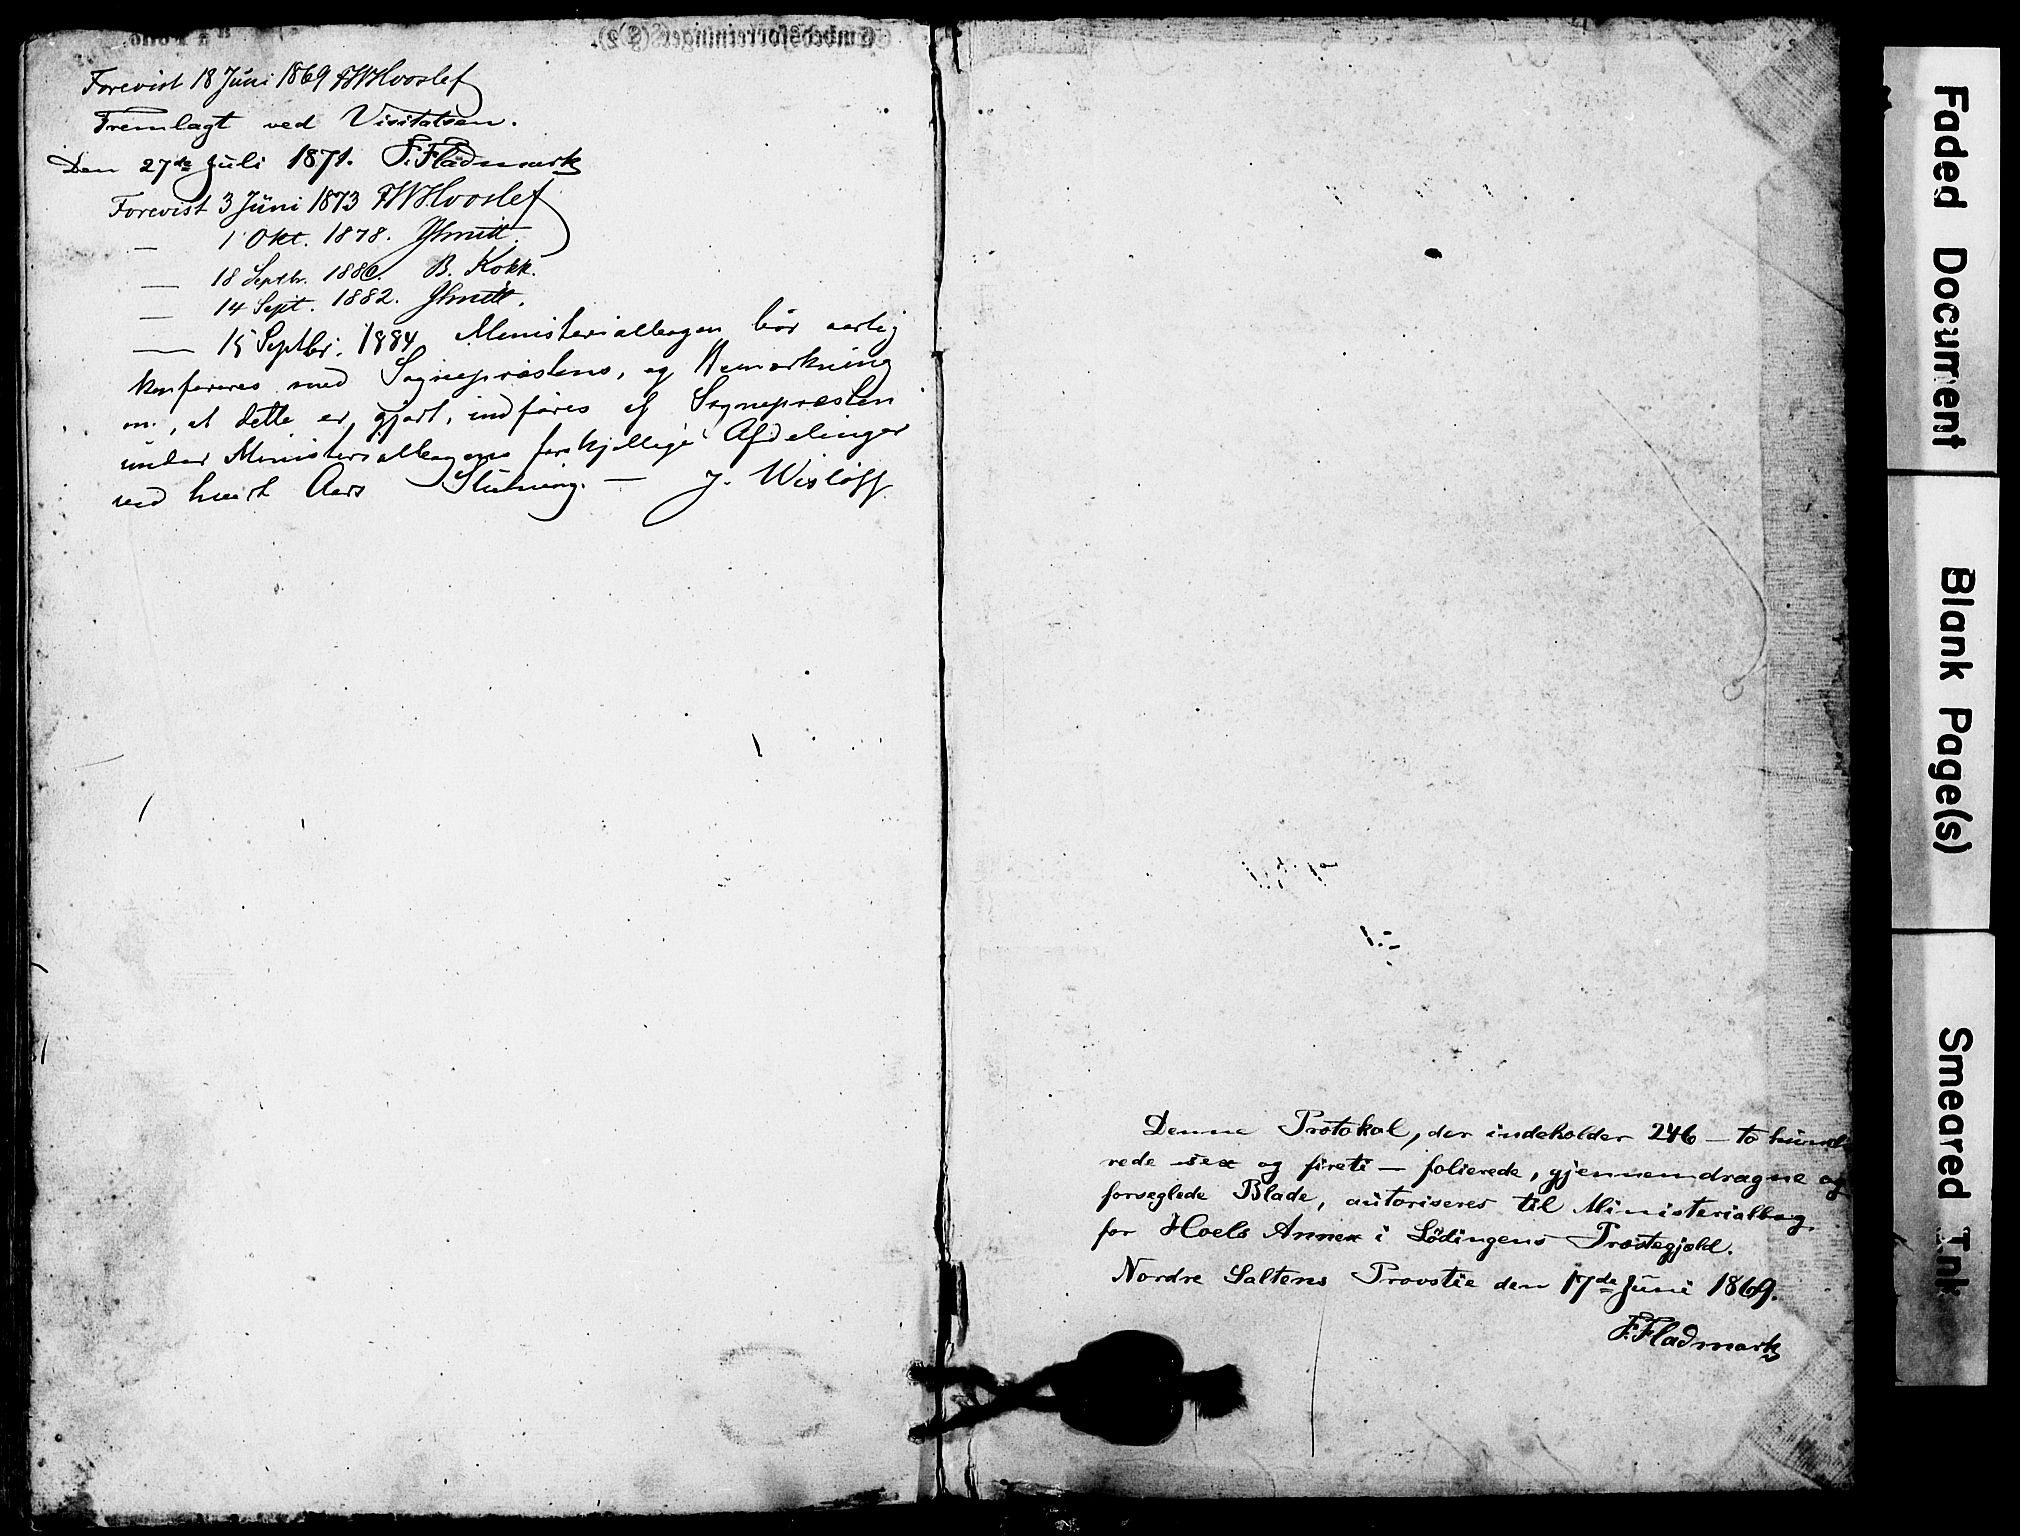 Forevist 18 Juni 1869 FWHvoslef
Fremlagt ved Visitatsen.
Den 27de Juli 1871. F. Fladmark
Forevist 3 Juni 1873 FWHvoslef
— 1 Okt. 1878. JSmitt.
— 18 Septbr. 1880. B. Kokk.
— 14 Sept. 1882. JSmitt.
— 15 Septbr. 1884 Ministerialbogen bör aarlig
konfereres med Sognepræstens, og Bemærkning
om, at dette er gjort, indføres af Sognepræsten
under Ministerialbogens forskjellige Afdelinger
ved hvert Aars Slutning. — J. Wisløff.
Denne Protokol, der indeholder 246 – to hund
rede sex og fireti – folierede, gjennemdragne og
forseglede Blade, autoriseres til Ministerialbog
for Hoels Annex i Lödingens Præstegjæld.
Nordre Saltens Provstie den 17de Juni 1869.
F. Fladmark
Faded Document
Blank Page(s)
Smeared Ink